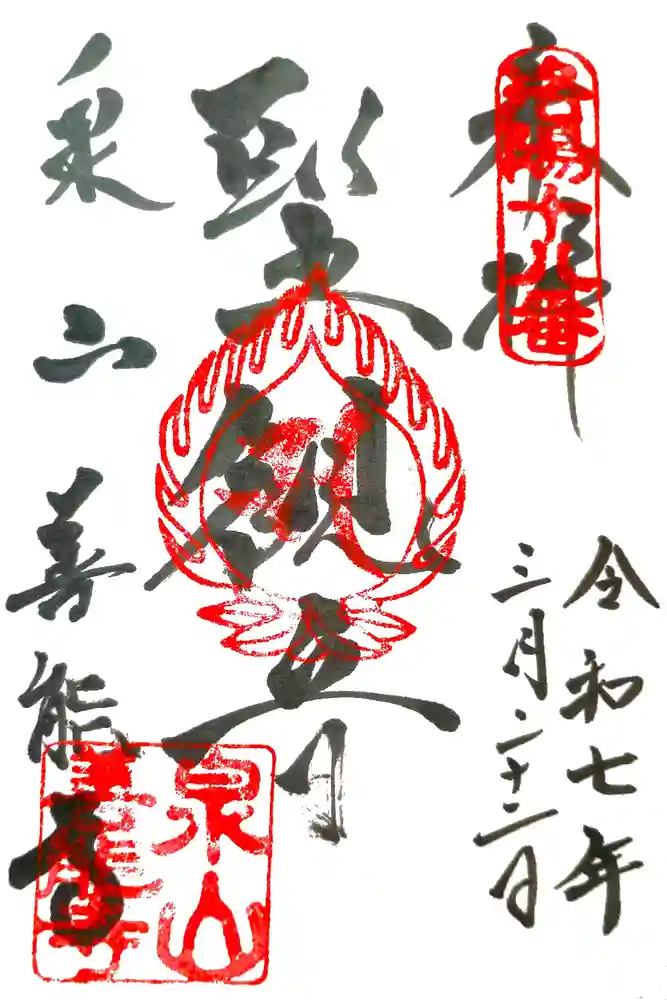 奉拝
洛陽十八番
令和七年
三月二十二日
聖観音
泉山 善能寺
泉山
善能寺